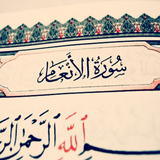 سُورَةُ الأَنْعَامِ
ـمِ اللَّهِ الرَّحْمَٰنِ الرَّ